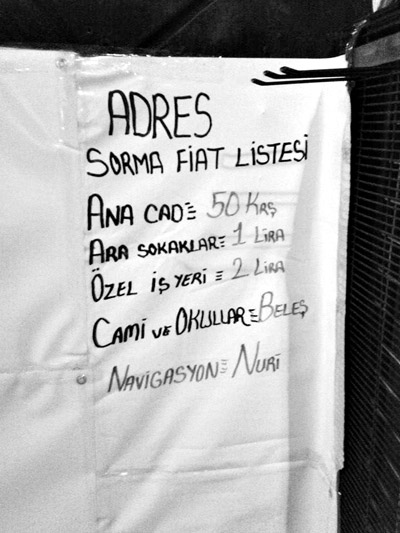 ADRES
SORMA FİAT LİSTESİ
ANA CAD= 50 KRŞ
ARA SOKAKLAR= 1 LİRA
ÖZEL İŞ YERİ = 2 LİRA
CAMİ VE OKULLAR= BELEŞ
NAVİGASYON= NURİ